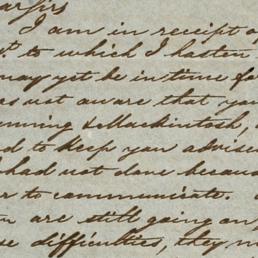 ar sirs
I am in receipt of
to which I hasten
may yet be in time fo
as not aware that you
nning & Mackintosh,
d to keep you advise
had not done because
r to communicate.
are still going on
se difficulties, they m